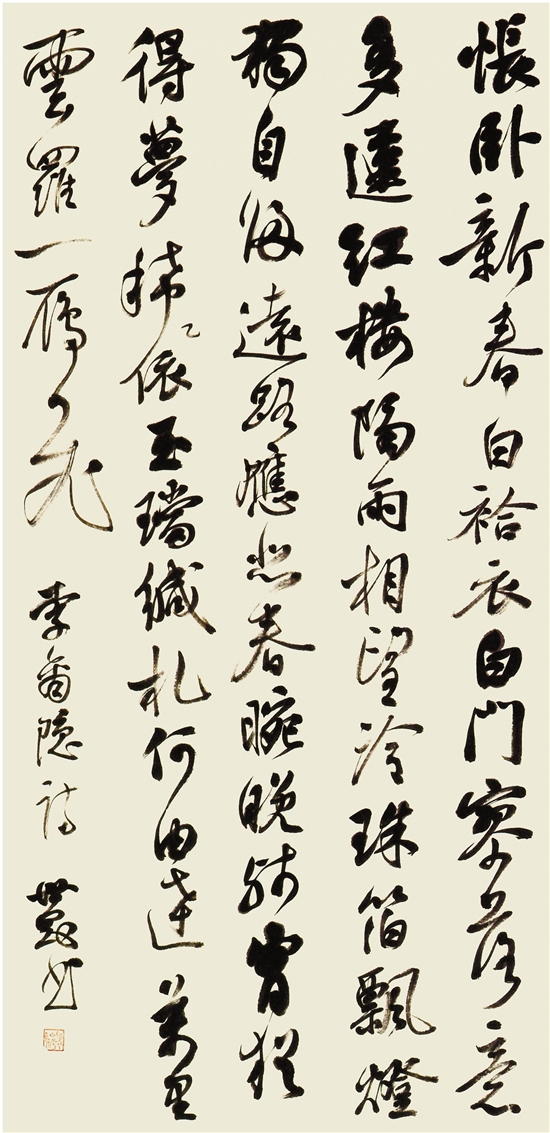 悵臥新春白袷衣白門寥落意
多違紅樓隔雨相望冷珠箔飄燈
獨自歸遠路應悲春晼晚殘宵猶
得夢稀依玉璫緘札何由達萬里
雲羅一雁飛 李商隱詩 世 書